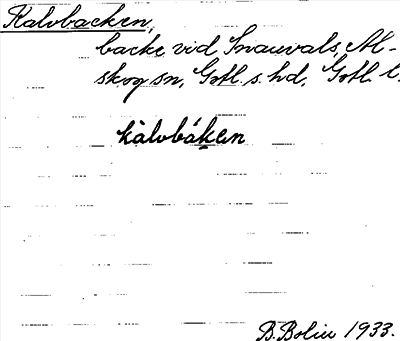 Kalvbacken,
backe vid Snauvals, Al-
skog sn, Gotl. s. hd, Gotl. l.
kàlvbákẹn
B. Bolin 1933.